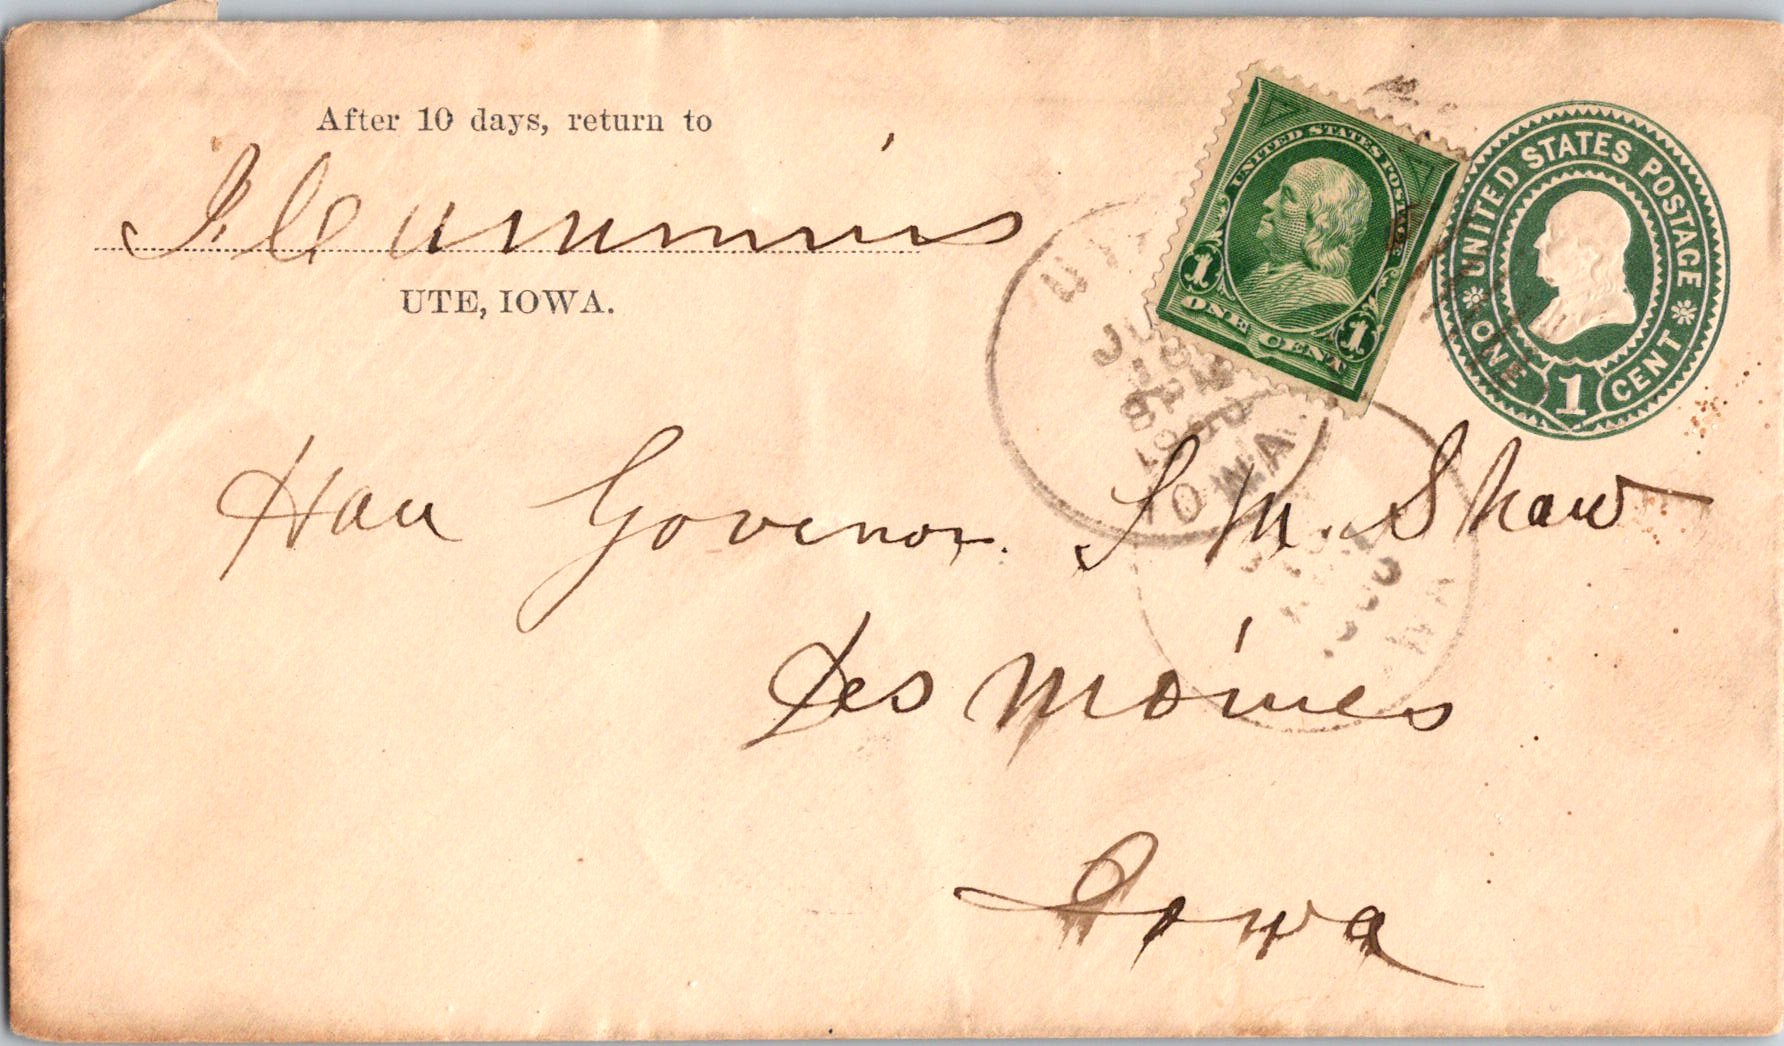 After 10 days, return to
J. C. Cummins
UTE, IOWA.
UNITED STATES POSTAGE
1 1
ONE CENT
UNITED STATES POSTAGE
ONE 1 CENT
IOWA
Hon Govenor. L M. Shaw
Des Moines
Iowa